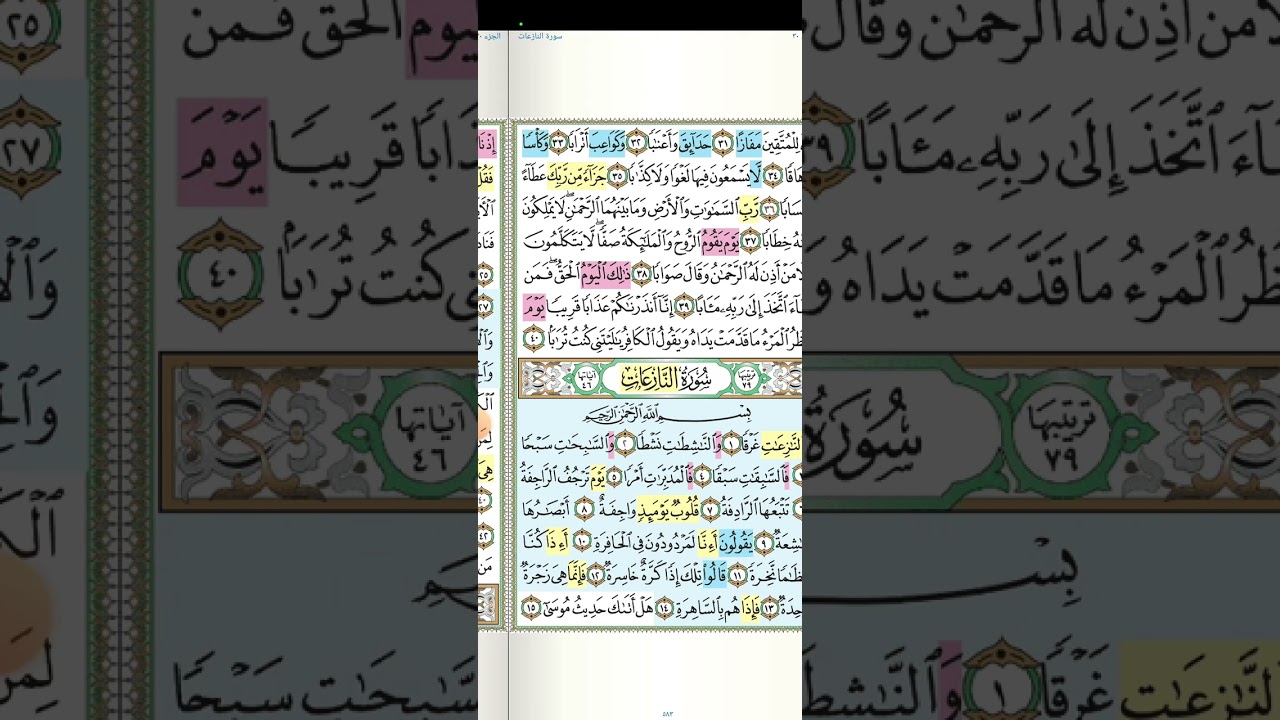 سورة النازعات
الجزء ٣٠
لِلْمُتَّقِينَ مَفَازًا ٣١ حَدَآئِقَ وَأَعْنَٰبًا ٣٢ وَكَوَاعِبَ أَتْرَابًا ٣٣ وَكَأْسًا
هَاقًا ٣٤ لَّا يَسْمَعُونَ فِيهَا لَغْوًا وَلَا كِذَّٰبًا ٣٥ جَزَآءً مِّن رَّبِّكَ عَطَآءً
سَابًا ٣٦ رَّبِّ ٱلسَّمَٰوَٰتِ وَٱلْأَرْضِ وَمَا بَيْنَهُمَا ٱلرَّحْمَٰنِ ۖ لَا يَمْلِكُونَ
نْهُ خِطَابًا ٣٧ يَوْمَ يَقُومُ ٱلرُّوحُ وَٱلْمَلَٰٓئِكَةُ صَفًّا ۖ لَّا يَتَكَلَّمُونَ
لَّا مَنْ أَذِنَ لَهُ ٱلرَّحْمَٰنُ وَقَالَ صَوَابًا ٣٨ ذَٰلِكَ ٱلْيَوْمُ ٱلْحَقُّ ۖ فَمَن
آءَ ٱتَّخَذَ إِلَىٰ رَبِّهِۦ مَـَٔابًا ٣٩ إِنَّآ أَنذَرْنَٰكُمْ عَذَابًا قَرِيبًا يَوْمَ
ظُرُ ٱلْمَرْءُ مَا قَدَّمَتْ يَدَاهُ وَيَقُولُ ٱلْكَافِرُ يَٰلَيْتَنِى كُنتُ تُرَٰبًۢا ٤٠
تَرتِيبُهَا ٧٩ سُورَةُ النَّازِعَاتِ آيَاتُهَا ٤٦
بِسْمِ ٱللَّهِ ٱلرَّحْمَٰنِ ٱلرَّحِيمِ
ٱلنَّٰزِعَٰتِ غَرْقًا ١ وَٱلنَّٰشِطَٰتِ نَشْطًا ٢ وَٱلسَّٰبِحَٰتِ سَبْحًا
فَٱلسَّٰبِقَٰتِ سَبْقًا ٤ فَٱلْمُدَبِّرَٰتِ أَمْرًا ٥ يَوْمَ تَرْجُفُ ٱلرَّاجِفَةُ
تَتْبَعُهَا ٱلرَّادِفَةُ ٧ قُلُوبٌ يَوْمَئِذٍ وَاجِفَةٌ ٨ أَبْصَٰرُهَا
ٰشِعَةٌ ٩ يَقُولُونَ أَءِنَّا لَمَرْدُودُونَ فِى ٱلْحَافِرَةِ ١٠ أَءِذَا كُنَّا
ظَٰمًا نَّخِرَةً ١١ قَالُوا۟ تِلْكَ إِذًا كَرَّةٌ خَاسِرَةٌ ١٢ فَإِنَّمَا هِىَ زَجْرَةٌ
حِدَةٌ ١٣ فَإِذَا هُم بِٱلسَّاهِرَةِ ١٤ هَلْ أَتَىٰكَ حَدِيثُ مُوسَىٰٓ ١٥
٥٨٣